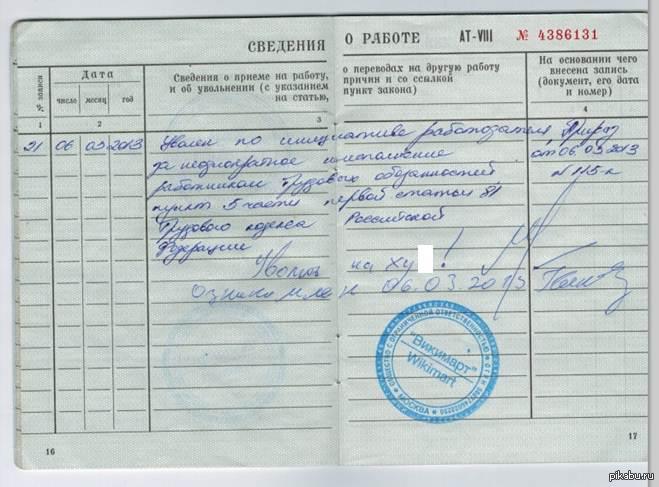 СВЕДЕНИЯ О РАБОТЕ АТ-VIII № 4386131
№ записи
Дата
число месяц год
Сведения о приеме на работу,
и об увольнении (с указанием
на статью,
о переводах на другую работу
причин и со ссылкой
пункт закона)
На основании чего
внесена запись
(документ, его дата
и номер)
1 2 3 4
21 06 03 2013 Уволен по инициативе работодателя Приказ
за неоднократное неисполнение от 06.03.2013
работником трудовых обязанностей №115-к
пункт 5 части первой статьи 81
Трудового кодекса Российской
Федерации
Уволен на ху !
Ознакомлен 06.03.2013
ОБЩЕСТВО С ОГРАНИЧЕННОЙ ОТВЕТСТВЕННОСТЬЮ
"Викимарт"
Wikimart
МОСКВА
16
17
pikabu.ru